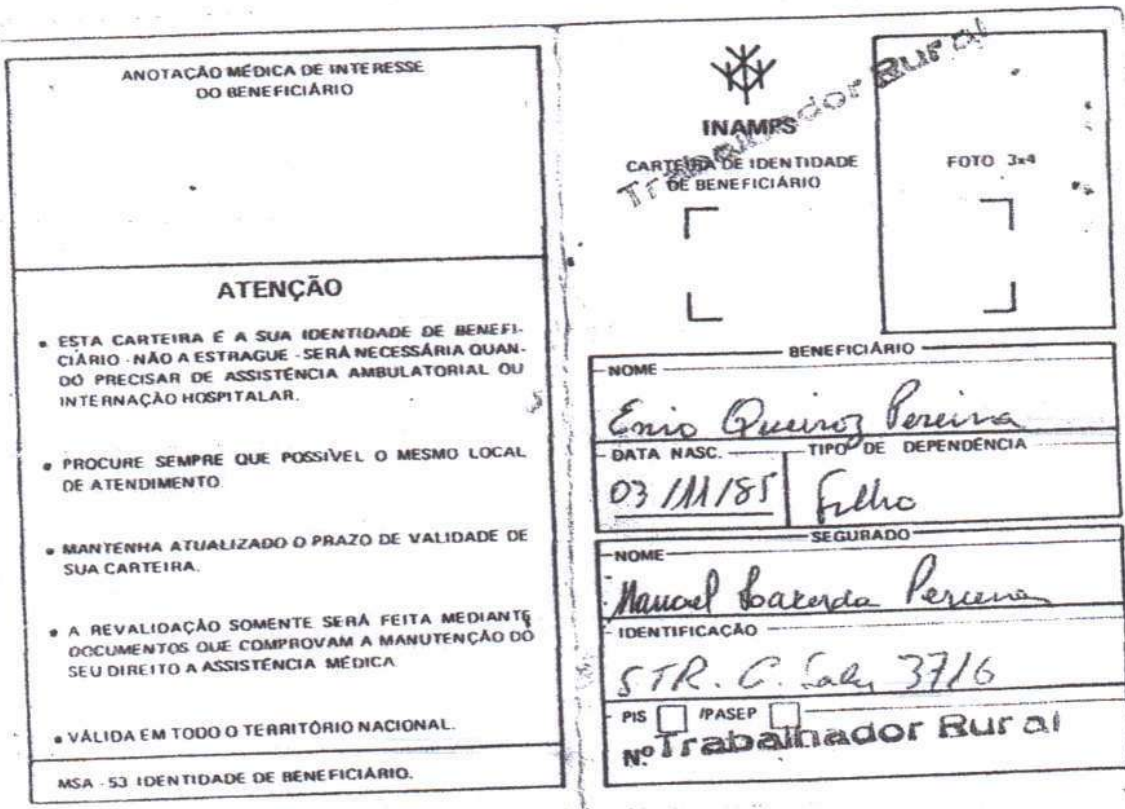 ANOTAÇÃO MÉDICA DE INTERESSE
DO BENEFICIÁRIO
ATENÇÃO
• ESTA CARTEIRA É A SUA IDENTIDADE DE BENEFI-
CIÁRIO - NÃO A ESTRAGUE - SERÁ NECESSÁRIA QUAN-
DO PRECISAR DE ASSISTÊNCIA AMBULATORIAL OU
INTERNAÇÃO HOSPITALAR.
• PROCURE SEMPRE QUE POSSÍVEL O MESMO LOCAL
DE ATENDIMENTO.
• MANTENHA ATUALIZADO O PRAZO DE VALIDADE DE
SUA CARTEIRA.
• A REVALIDAÇÃO SOMENTE SERÁ FEITA MEDIANTE
DOCUMENTOS QUE COMPROVAM A MANUTENÇÃO DO
SEU DIREITO A ASSISTÊNCIA MÉDICA
• VÁLIDA EM TODO O TERRITÓRIO NACIONAL.
MSA - 53 IDENTIDADE DE BENEFICIÁRIO.
INAMPS
CARTEIRA DE IDENTIDADE
DE BENEFICIÁRIO
Trabalhador Rural
FOTO 3x4
BENEFICIÁRIO
NOME
Enio Queiroz Pereira
DATA NASC. TIPO DE DEPENDÊNCIA
03/11/85 Filho
SEGURADO
NOME
Manoel Pereira
IDENTIFICAÇÃO
STR. C. 3716
PIS /PASEP
Nº Trabalhador Rural